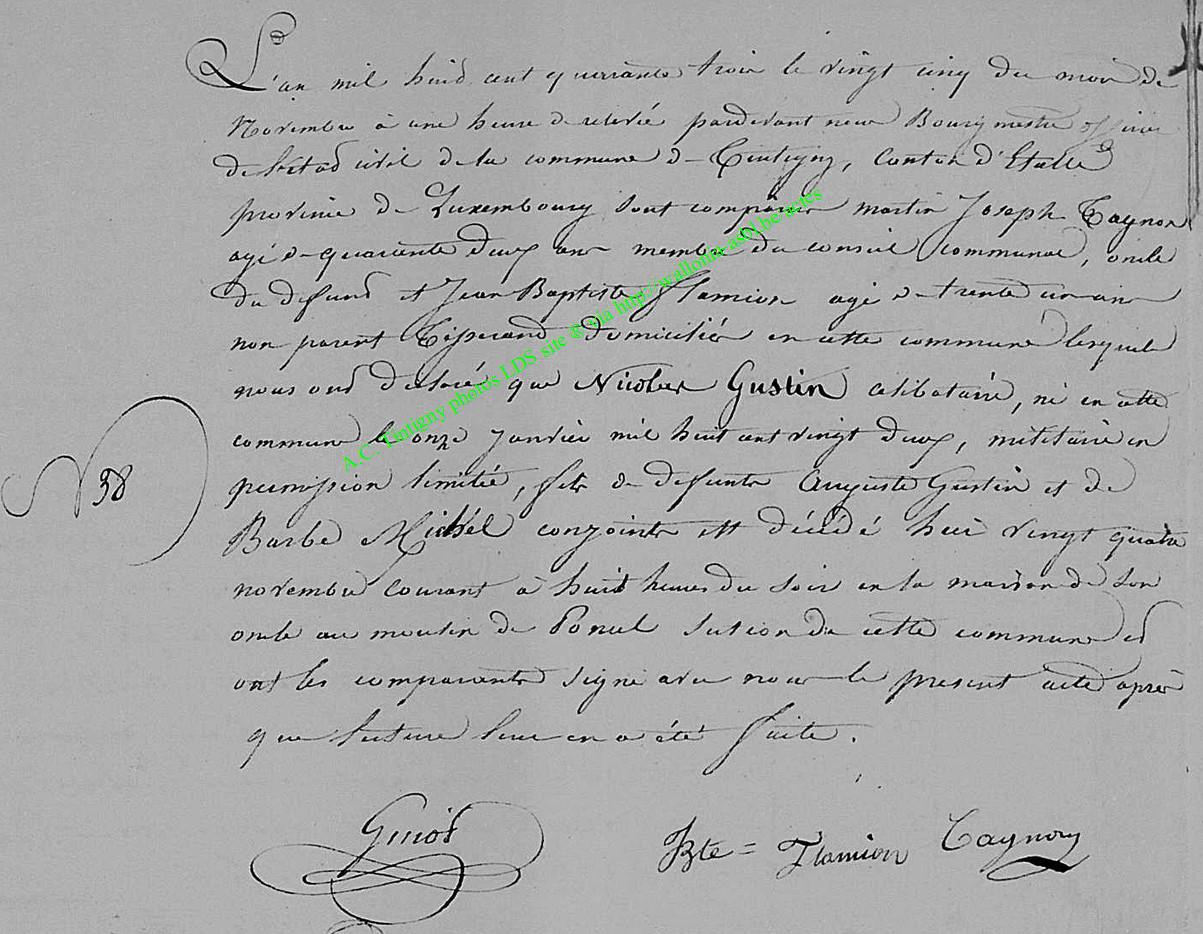 L'an mil huid cent quarrante trois le vingt cinq du mois de
Novembre à une heure de relevée pardevant nous Bourgmestre officier
de l'etat civil de la commune de Tintigny, Canton d'Etalle
province de Luxembourg sont comparus martin Joseph Tagnon
agé de quarante deux ans membre du conseil communal, oncle
du defund et Jean Baptiste Flamion agé de trente un ans
non parent Tisserand domiciliés en cette commune lesquels
nous ond declaré que Nicolas Gustin celibataire, né en cette
commune le onze janvier mil huit cent vingt deux, militaire en
permission limitée, fils de defunts Auguste Gustin et de
Barbe Michel conjoints est décédé hier vingt quatre
novembre courant à huit heures du soir en la maison de son
oncle au moulin de Poncel section de cette commune et
ont les comparants signé avec nous le present acte après
que lecture leur en a été faite.
N 38
A.C. Tintigny photos LDS site @ via http://wallonia-asbl.be actes
Bte = Flamion Tagnon